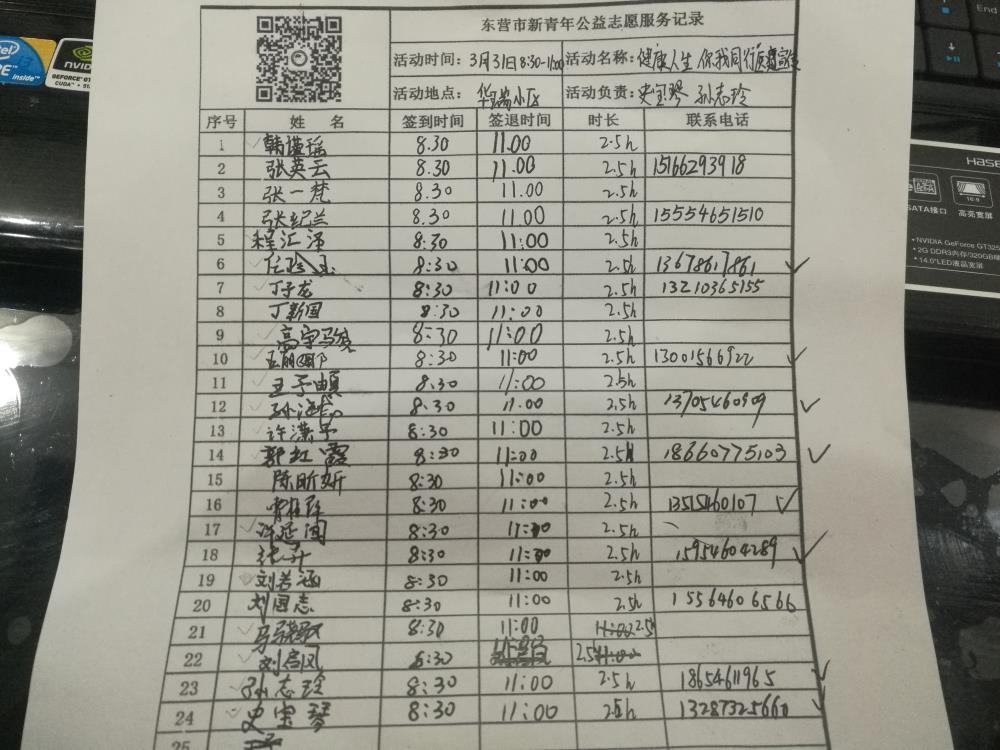 东营市新青年公益志愿服务记录
活动时间: 3月31日8:30-11:00 活动名称: 健康人生 你我同行
活动地点: 华瑞小区 活动负责: 史宝琴 孙志玲
序号 姓 名 签到时间 签退时间 时长 联系电话
1 韩瑾瑶 8.30 11.00 2.5h
2 张英云 8.30 11.00 2.5h 15166293918
3 张一梵 8.30 11.00 2.5h
4 张纪兰 8.30 11.00 2.5h 15554651510
5 程汇泽 8:30 11:00 2.5h
6 8:30 11:00 2.5h 13678617861
7 丁子龙 8:30 11:00 2.5h 13210365155
8 丁新国 8:30 11:00 2.5h
9 8:30 11:00 2.5h
10 8:30 11:00 2.5h 13001566922
11 王子 8:30 11:00 2.5h
12 8:30 11.00 2.5h 13705460909
13 许潇予 8:30 11:00 2.5h
14 郭红霞 8:30 11:00 2.5h 18660775103
15 陈昕妍 8:30 11:00 2.5h
16 8:30 11:00 2.5h
17 许延国 8:30 11:00 2.5h
18 8:30 11:00 2.5h 15954604289
19 刘若涵 8:30 11:00 2.5h
20 刘国志 8:30 11:00 2.5h 15564606566
21 8:30 11:00 2.5h
22 刘启凤 8:30 11:00 2.5h
23 孙志玲 8:30 11:00 2.5h 18654611965
24 史宝琴 8:30 11:00 2.5h 13287325660
25
intel
inside
NVIDIA
GEFORCE
CUDA
SATA接口
高亮宽屏
16:9
• 2G DDR3内存/320GB
• 14.0"LED液晶宽屏
End